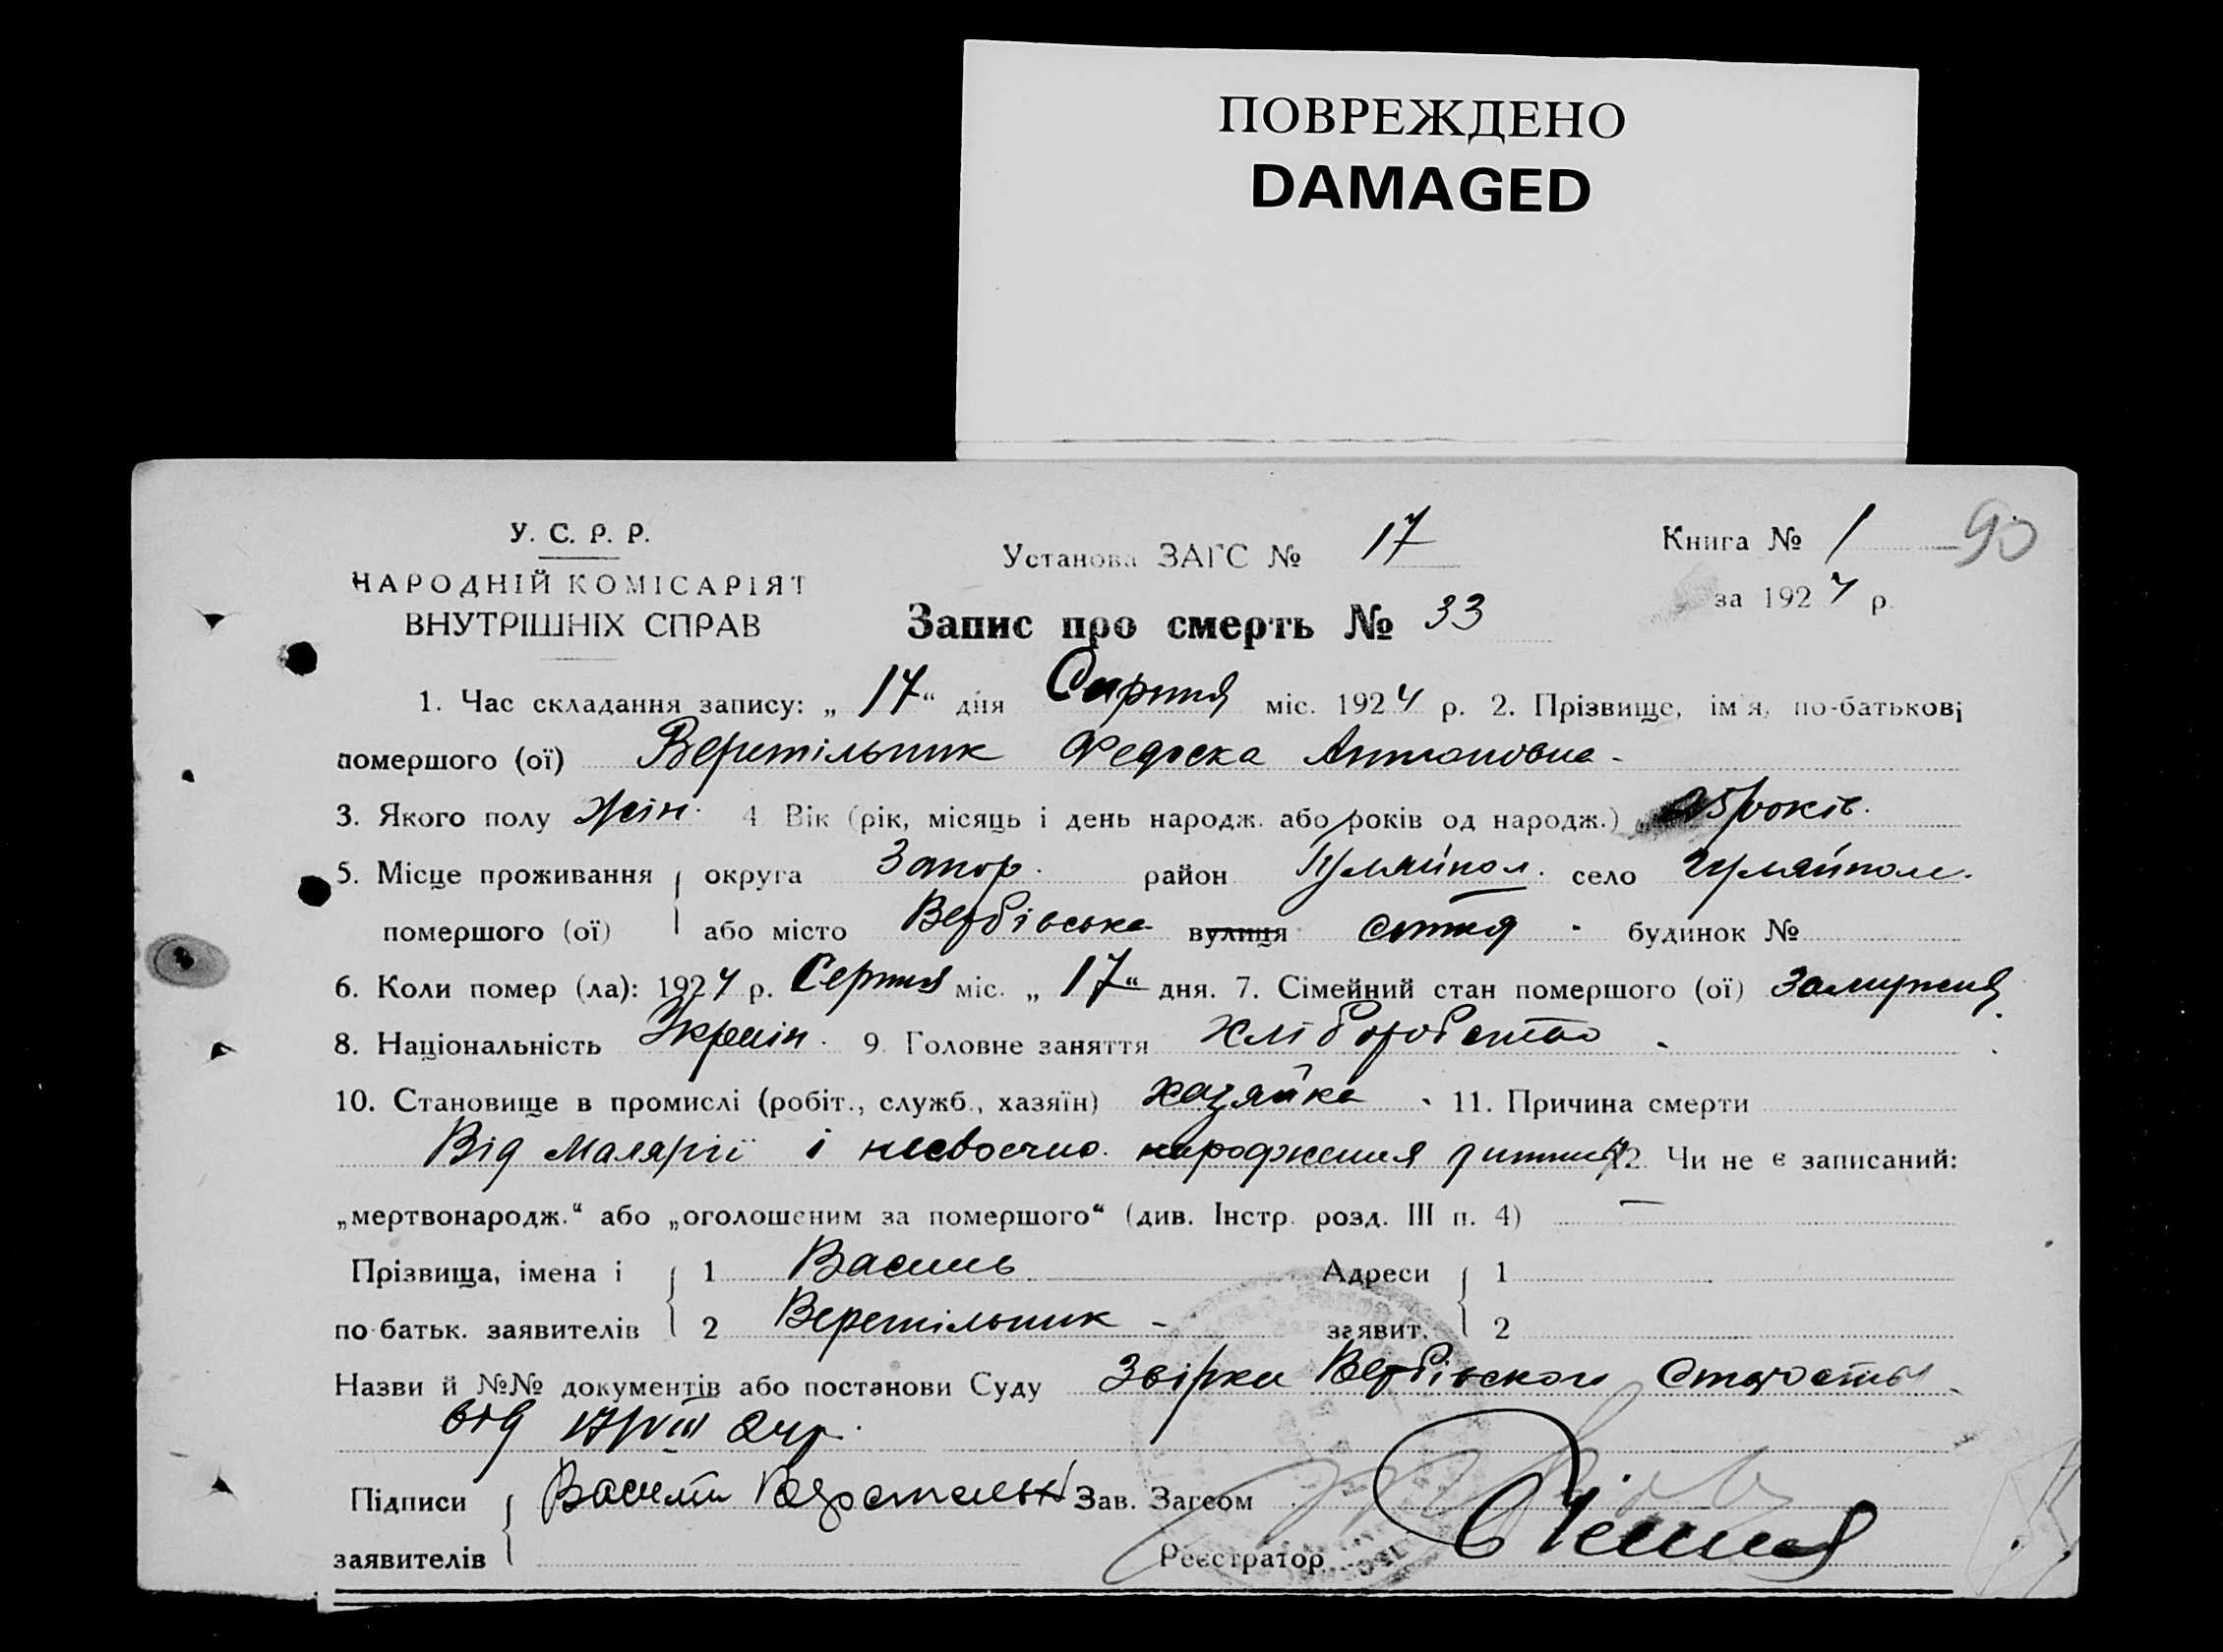 ПОВРЕЖДЕНО
DAMAGED
У. С. Р. Р.
НАРОДНІЙ КОМІСАРІЯТ
ВНУТРІШНІХ СПРАВ
Установа ЗАГС № 17
Книга № 1 90
за 1924 р.
Запис про смерть № 33
1. Час складання запису: „17“ дня Серпня міс. 1924 р. 2. Прізвище, ім'я, по-батькові
помершого (ої) Веретільник Федоска Антоновна -
3. Якого полу жін. 4 Вік (рік, місяць і день народж. або років од народж.) 25 років.
5. Місце проживання округа Запор. район Гуляйпол. село Гуляйполе.
помершого (ої) або місто Вербівська вулиця сотня - будинок №
6. Коли помер (ла): 1924 р. Серпня міс. „17“ дня. 7. Сімейний стан помершого (ої) Замужня.
8. Національність Україн. 9. Головне заняття Хліборобство
10. Становище в промислі (робіт., служб., хазяїн) хазяйка 11. Причина смерти
Від Малярії і несвоечно народження дитини 12. Чи не є записаний:
„мертвонародж.“ або „оголошеним за помершого“ (див. Інстр. розд. III п. 4) —
Прізвища, імена і 1 Василь Адреси 1
по-батьк. заявителів 2 Веретільник - заявит. 2
Назви й №№ документів або постанови Суду Звірки Вербівскоги
від 17/VIII 24р.
Підписи Зав. Загсом
заявителів Реєстратор